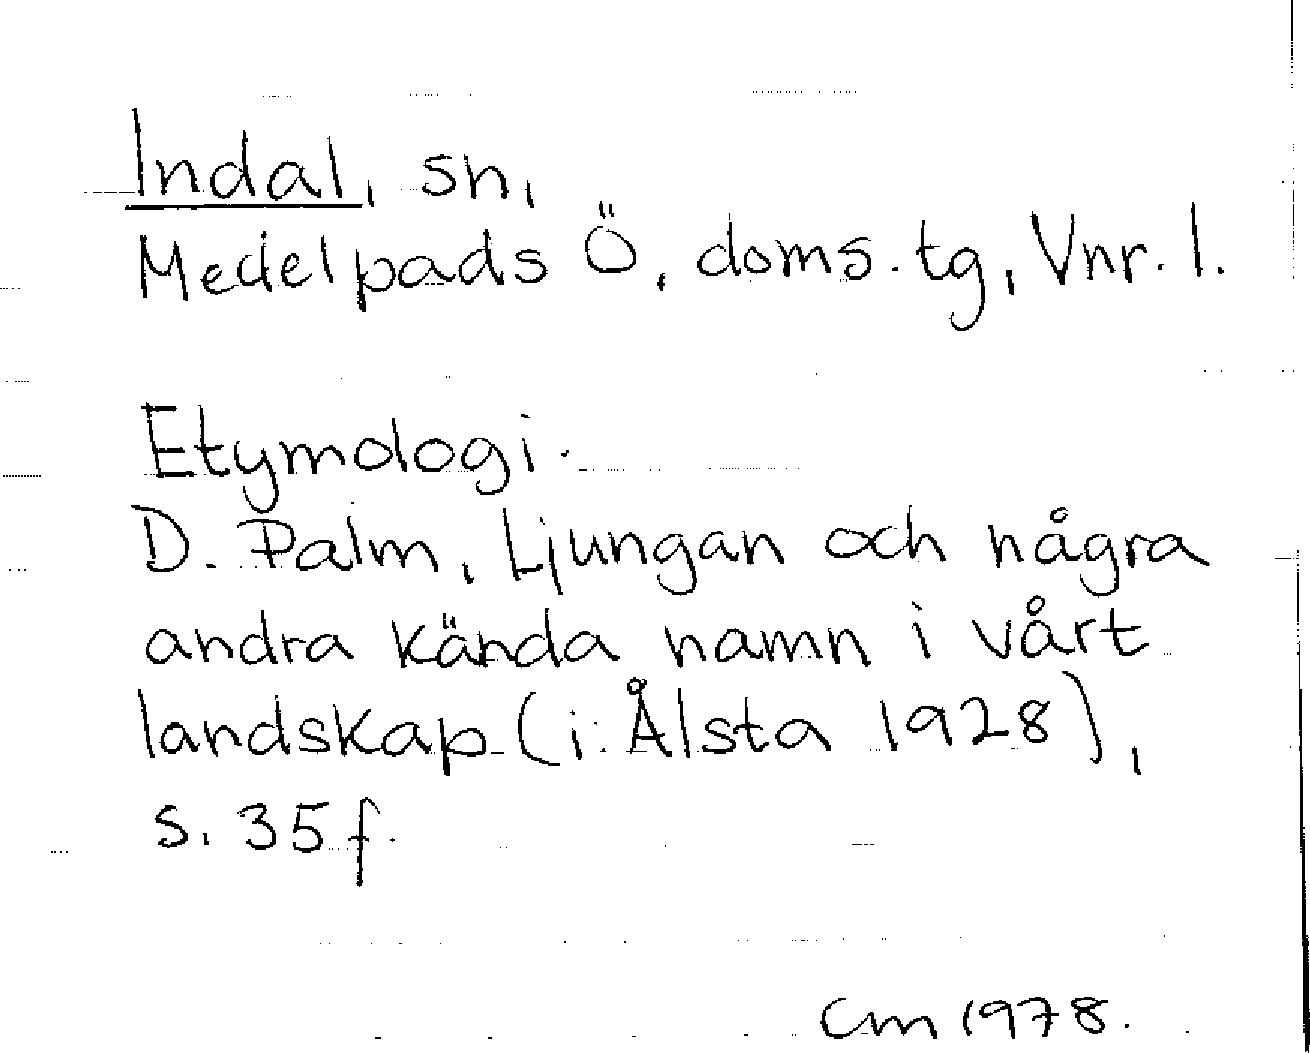 Indal, sn,
Medelpads Ö, doms.tg, Vnr. l.
Etymologi.
D. Palm, Ljungan och några
andra kända namn i vårt
landskap (i: Ålsta 1928),
s. 35 f.
Cm 1978.